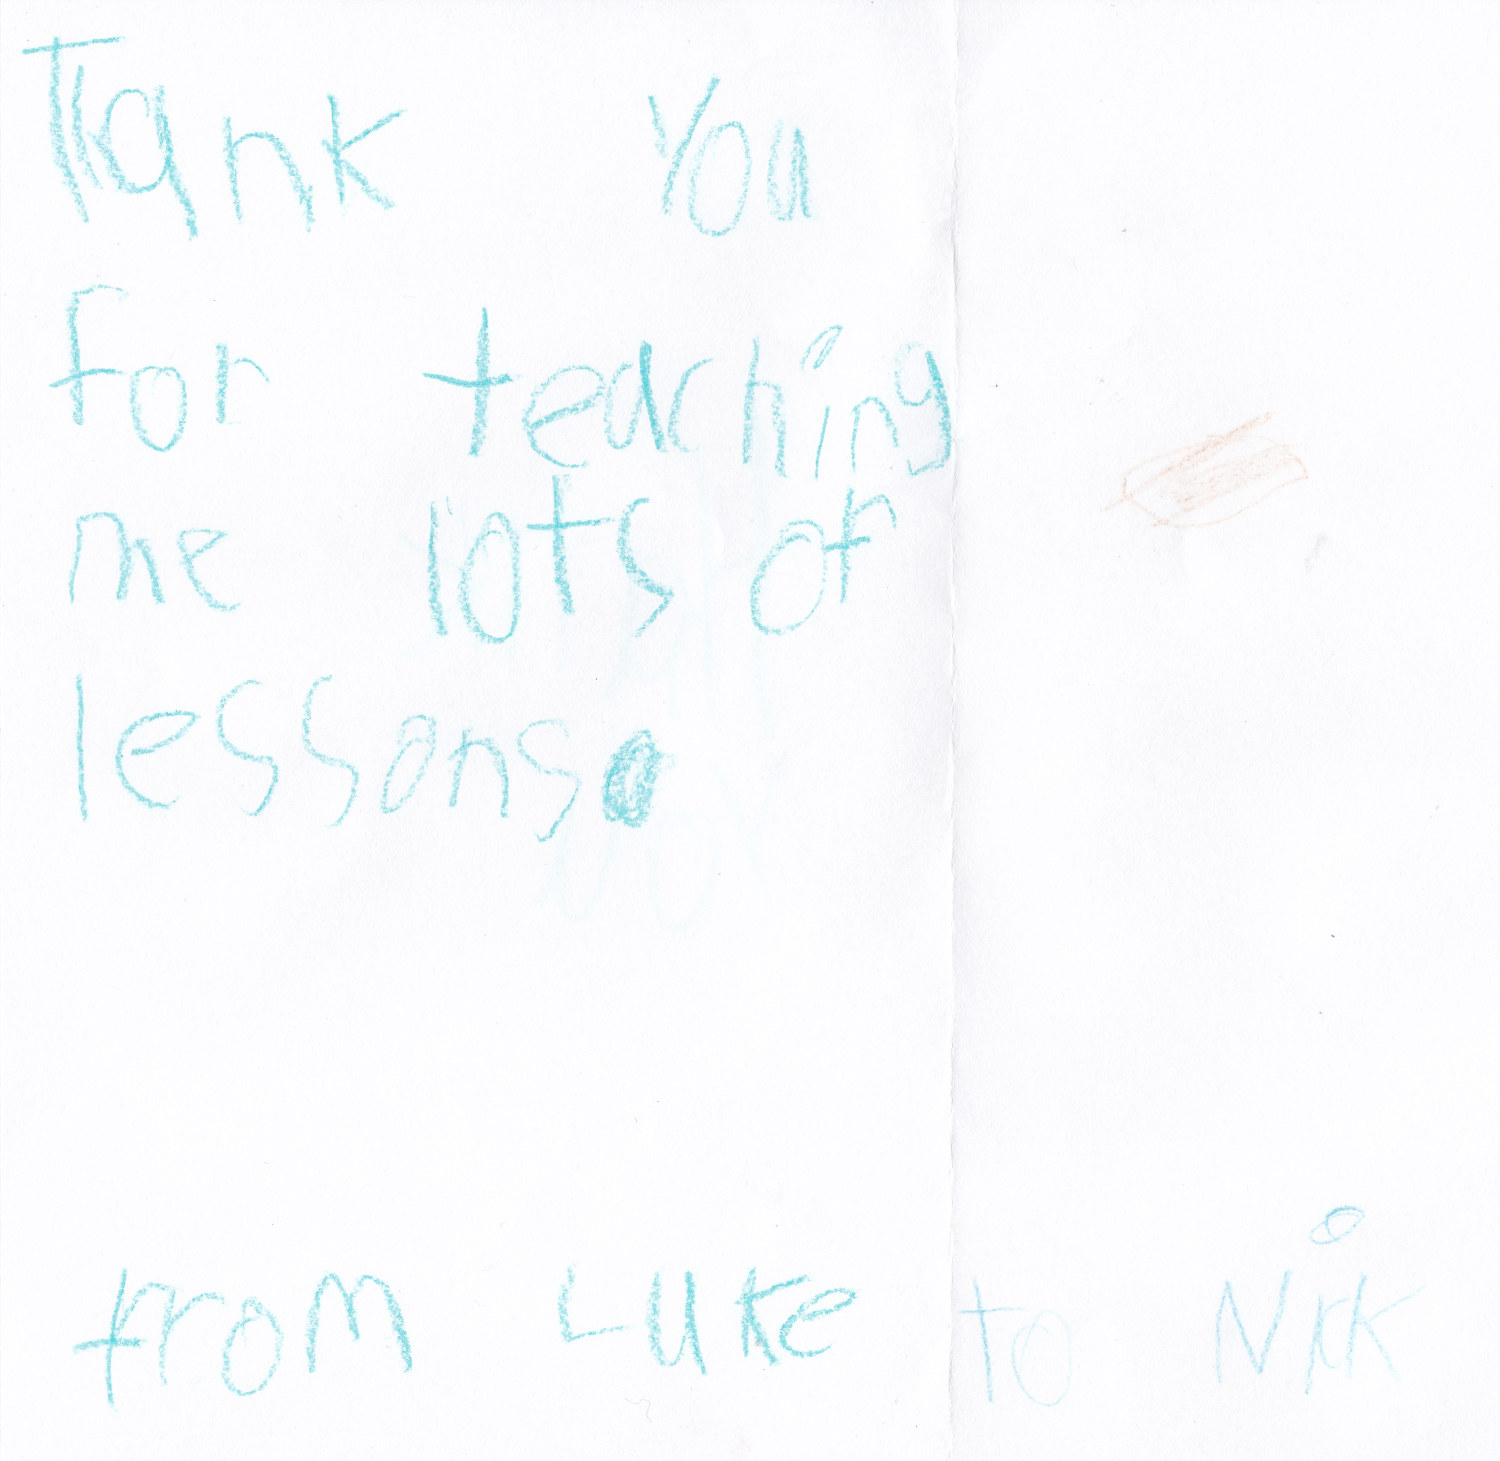 Thank you
for teaching
me lots of
lessons.
from Luke to Nick